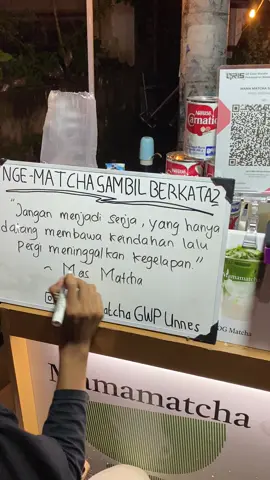 NGE-MATCHA SAMBIL BERKATA2
"Jangan menjadi senja, yang hanya
datang membawa keindahan lalu
pergi meninggalkan kegelapan."
~ Mas Matcha
atcha GWP Unnes
Nestle
Carnation
QRIS
Mamamatcha
OG Matcha
Mamamatcha